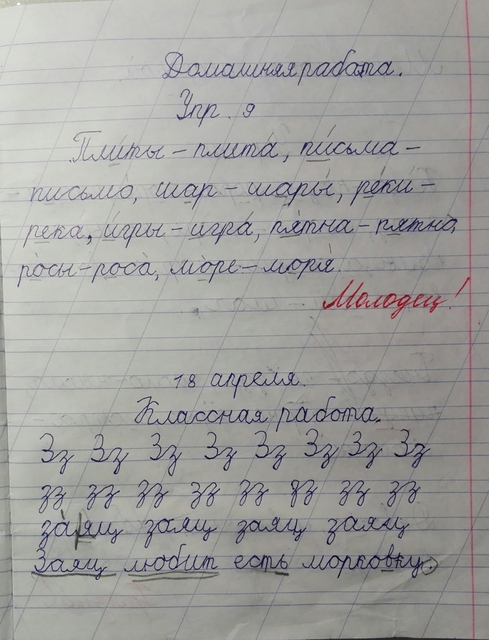 Домашняя работа.
Упр. 9
Плиты – плита, письма –
письмо, шар – шары, реки –
река, игры – игра, пятна – пятно,
росы – роса, море – моря.
Молодец!
18 апреля.
Классная работа.
Зз Зз Зз Зз Зз Зз Зз Зз
зз зз зз зз зз зз зз зз
заяц заяц заяц заяц
Заяц любит есть морковку.